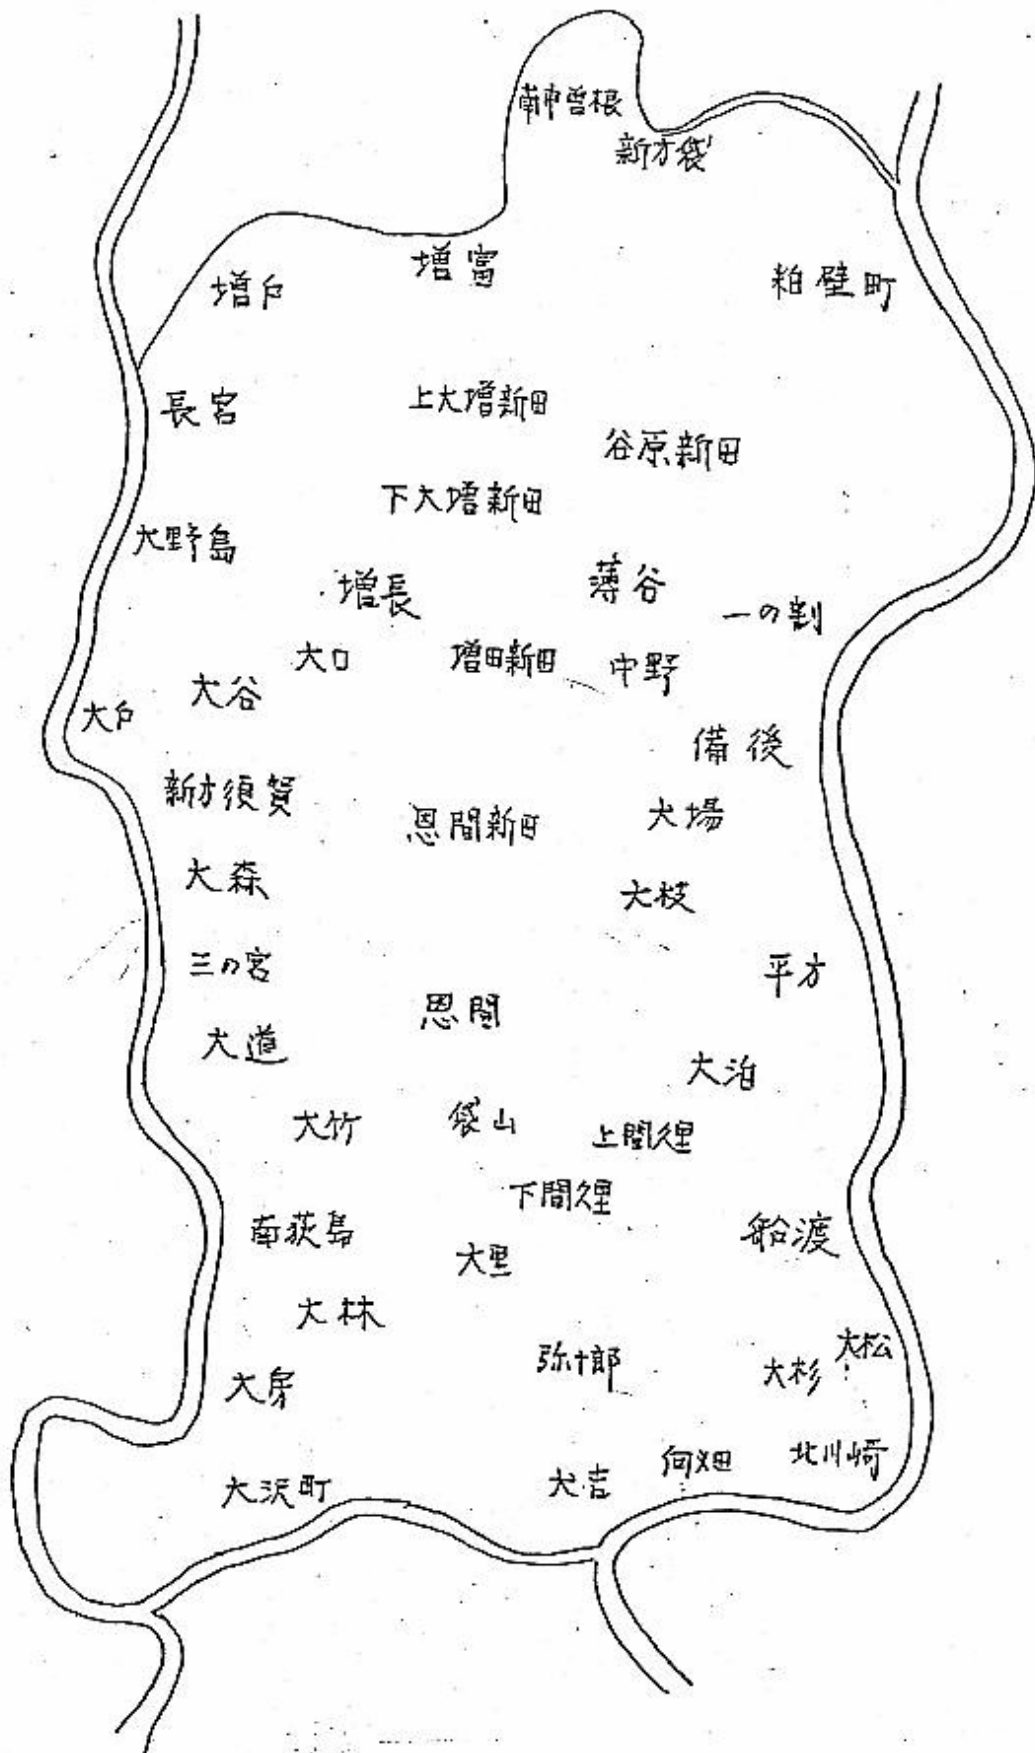 南中曽根
新方袋
増戸
増富
粕壁町
長宮
上大増新田
谷原新田
下大増新田
大野島
増長
薄谷
一の割
大口
増田新田
中野
大谷
大戸
備後
新方須賀
恩間新田
大場
大森
大枝
三の宮
平方
恩間
大道
大泊
大竹
袋山
上間久里
下間久里
南荻島
船渡
大里
大林
弥十郎
大松
大杉
大房
北川崎
向畑
大沢町
大吉